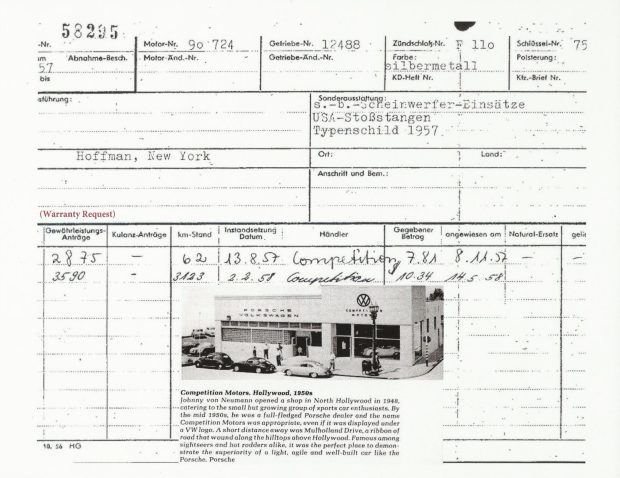 58295
-Nr.
Motor-Nr. 90 724
Getriebe-Nr. 12488
Zündschloß-Nr. F 110
Schlüssel-Nr. 75
57
Abnahme-Besch.
Motor-Änd.-Nr.
Getriebe-Änd.-Nr.
Farbe:
silbermetall
Polsterung:
bis
KD-Heft Nr.
Kfz.-Brief Nr.
sführung:
Sonderausstattung:
s.-b.-Scheinwerfer-Einsätze
USA-Stoßstangen
Typenschild 1957
Hoffman, New York
Ort:
Land:
Anschrift und Bem.:
(Warranty Request)
Gewährleistungs-Anträge
Kulanz-Anträge
km-Stand
Instandsetzung Datum
Händler
Gegebener Betrag
angewiesen am
Natural-Ersatz
2875 – 62 13.8.57 Competition 7.81 8.11.57 – –
3590 - 3123 2.2.58 Competition 10.34 14.5.58
PORSCHE
VOLKSWAGEN
VW
COMPETITION
MOTORS
Competition Motors. Hollywood, 1950s
Johnny von Neumann opened a shop in North Hollywood in 1948,
catering to the small but growing group of sports car enthusiasts. By
the mid 1950s, he was a full-fledged Porsche dealer and the name
Competition Motors was appropriate, even if it was displayed under
a VW logo. A short distance away was Mulholland Drive, a ribbon of
road that wound along the hilltops above Hollywood. Famous among
sightseers and hot rodders alike, it was the perfect place to demon-
strate the superiority of a light, agile and well-built car like the
Porsche. Porsche
10. 56 HG